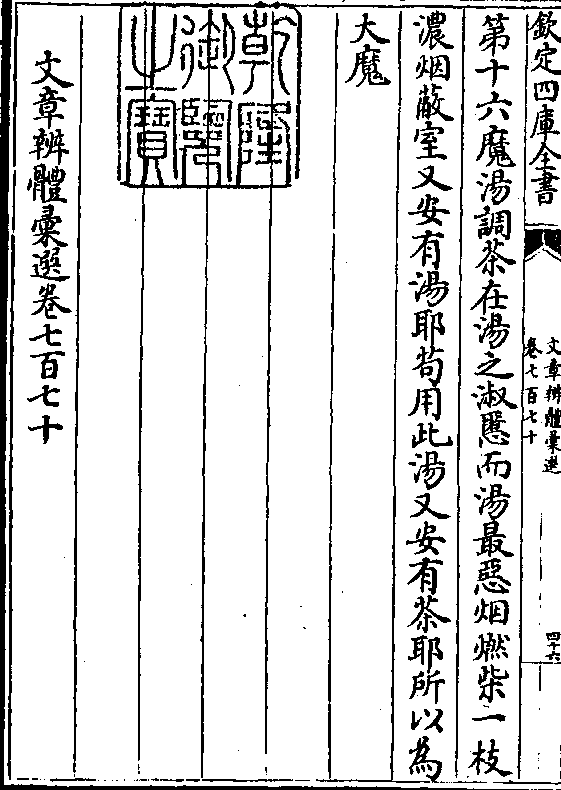 欽定四庫全書
文章辨體彙選
卷七百七十
四十六
第十六魔湯調茶在湯之淑慝而湯最惡烟燃柴一枝
濃烟蔽室又安有湯耶苟用此湯又安有茶耶所以為
大魔
乾隆
御覽
之寶
文章辨體彙選卷七百七十